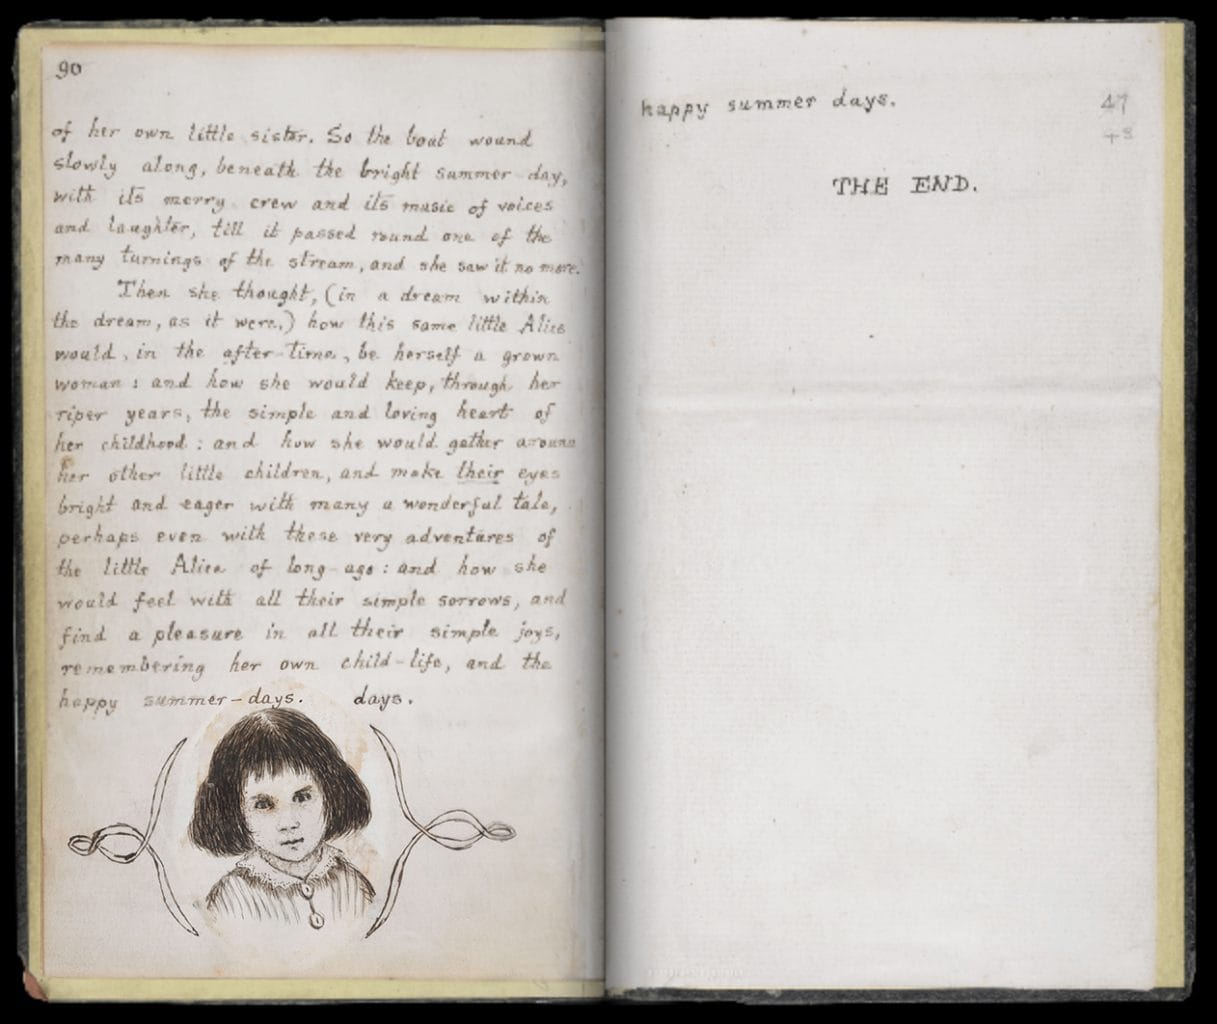 90
of her own little sister. So the boat wound
slowly along, beneath the bright summer-day,
with its merry crew and its music of voices
and laughter, till it passed round one of the
many turnings of the stream, and she saw it no more.
Then she thought, (in a dream within
the dream, as it were,) how this same little Alice
would, in the after-time, be herself a grown
woman: and how she would keep, through her
riper years, the simple and loving heart of
her childhood: and how she would gather around
her other little children, and make their eyes
bright and eager with many a wonderful tale,
perhaps even with these very adventures of
the little Alice of long-ago: and how she
would feel with all their simple sorrows, and
find a pleasure in all their simple joys,
remembering her own child-life, and the
happy summer-days. days.
happy summer days.
47
+3
THE END.